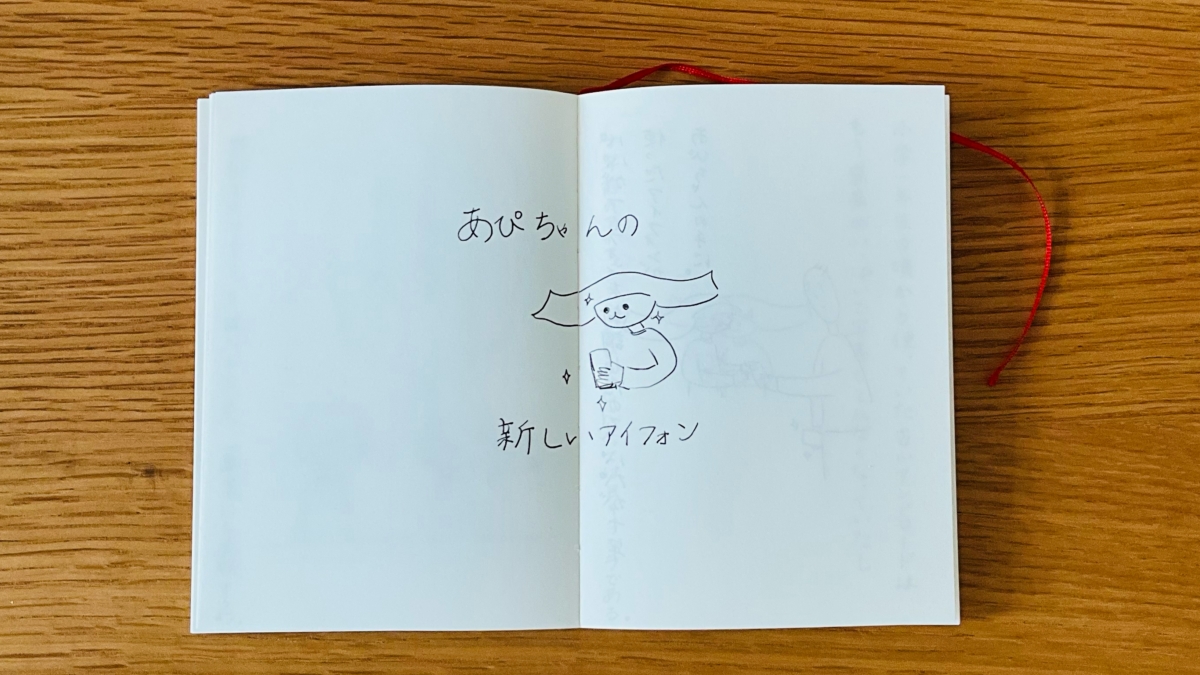 あぴちゃんの
新しいアイフォン